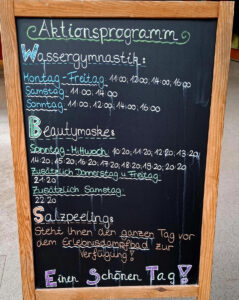 Aktionsprogramm
Wassergymnastik:
Montag - Freitag 11:00, 13:00, 14:00, 16:00
Samstag 11:00, 14:00
Sonntag 11:00, 12:00, 14:00, 16:00
Beautymaske:
Sonntag - Mittwoch 10:20, 11:20, 12:20, 13:20
14:20, 15:20, 16:20, 17:20, 18:20, 19:20, 20:20
Zusätzlich Donnerstag u. Freitag
21:20
Zusätzlich Samstag
22:20
Salzpeeling:
Steht Ihnen den ganzen Tag vor
dem Erlebnisdampfbad zur
Verfügung!
Einen Schönen Tag!